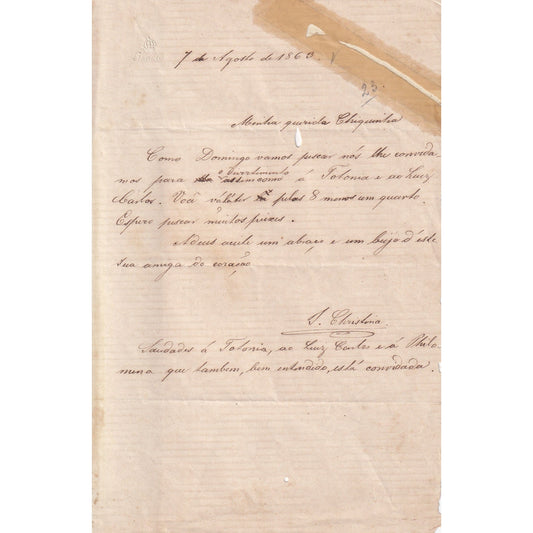 7 de Agosto de 1863.
23.
Minha querida Chiquinha
Como Domingo vamos pescar nós lhe convida
o divertimento
mos para assim como á Totonia e ao Luiz
Carlos. Você pelas 8 menos um quarto.
Espero pescar muitos peixes.
Adeus aceite um abraço e um beijo d'esta
sua amiga do coração
Christina
Saudades á Totonia, ao Luiz Carlos e á Philo
mena que tambem, bem entendido, está convidada.